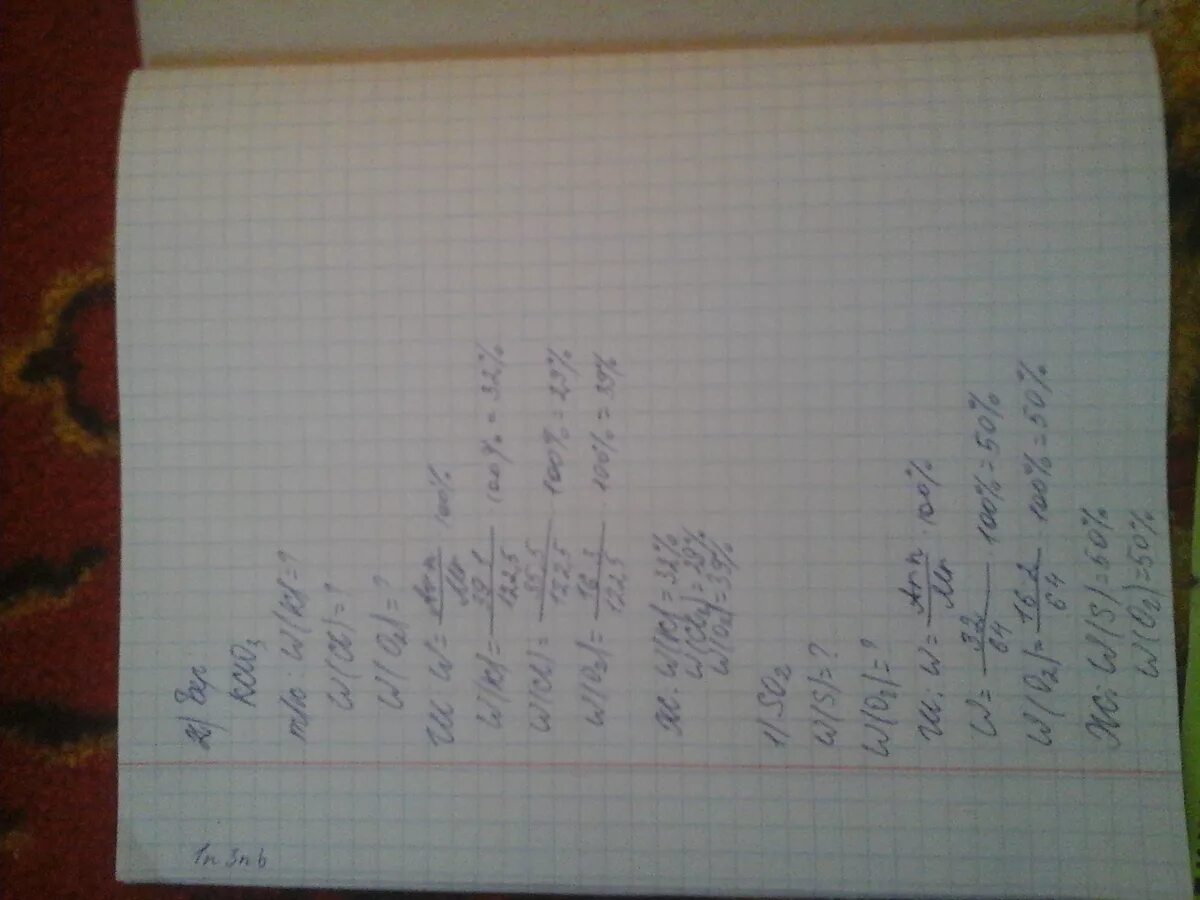 1п 3п b
2) Бер:
KClO3
т/к: W(K)=?
W(Cl)=?
W(O2)=?
W= Ar·n / Mr · 100%
W(K)= 39·1 / 122,5 · 100% = 32%
W(Cl)= 35,5 / 122,5 · 100% = 29%
W(O2)= 16·3 / 122,5 · 100% = 39%
Ж: W(K)=32%
W(Cl)=29%
W(O2)=39%
1) SO2
W(S)=?
W(O2)=?
W= Ar·n / Mr · 100%
W= 32 / 64 · 100% = 50%
W(O2)= 16·2 / 64 · 100% = 50%
W(S)=50%
W(O2)=50%